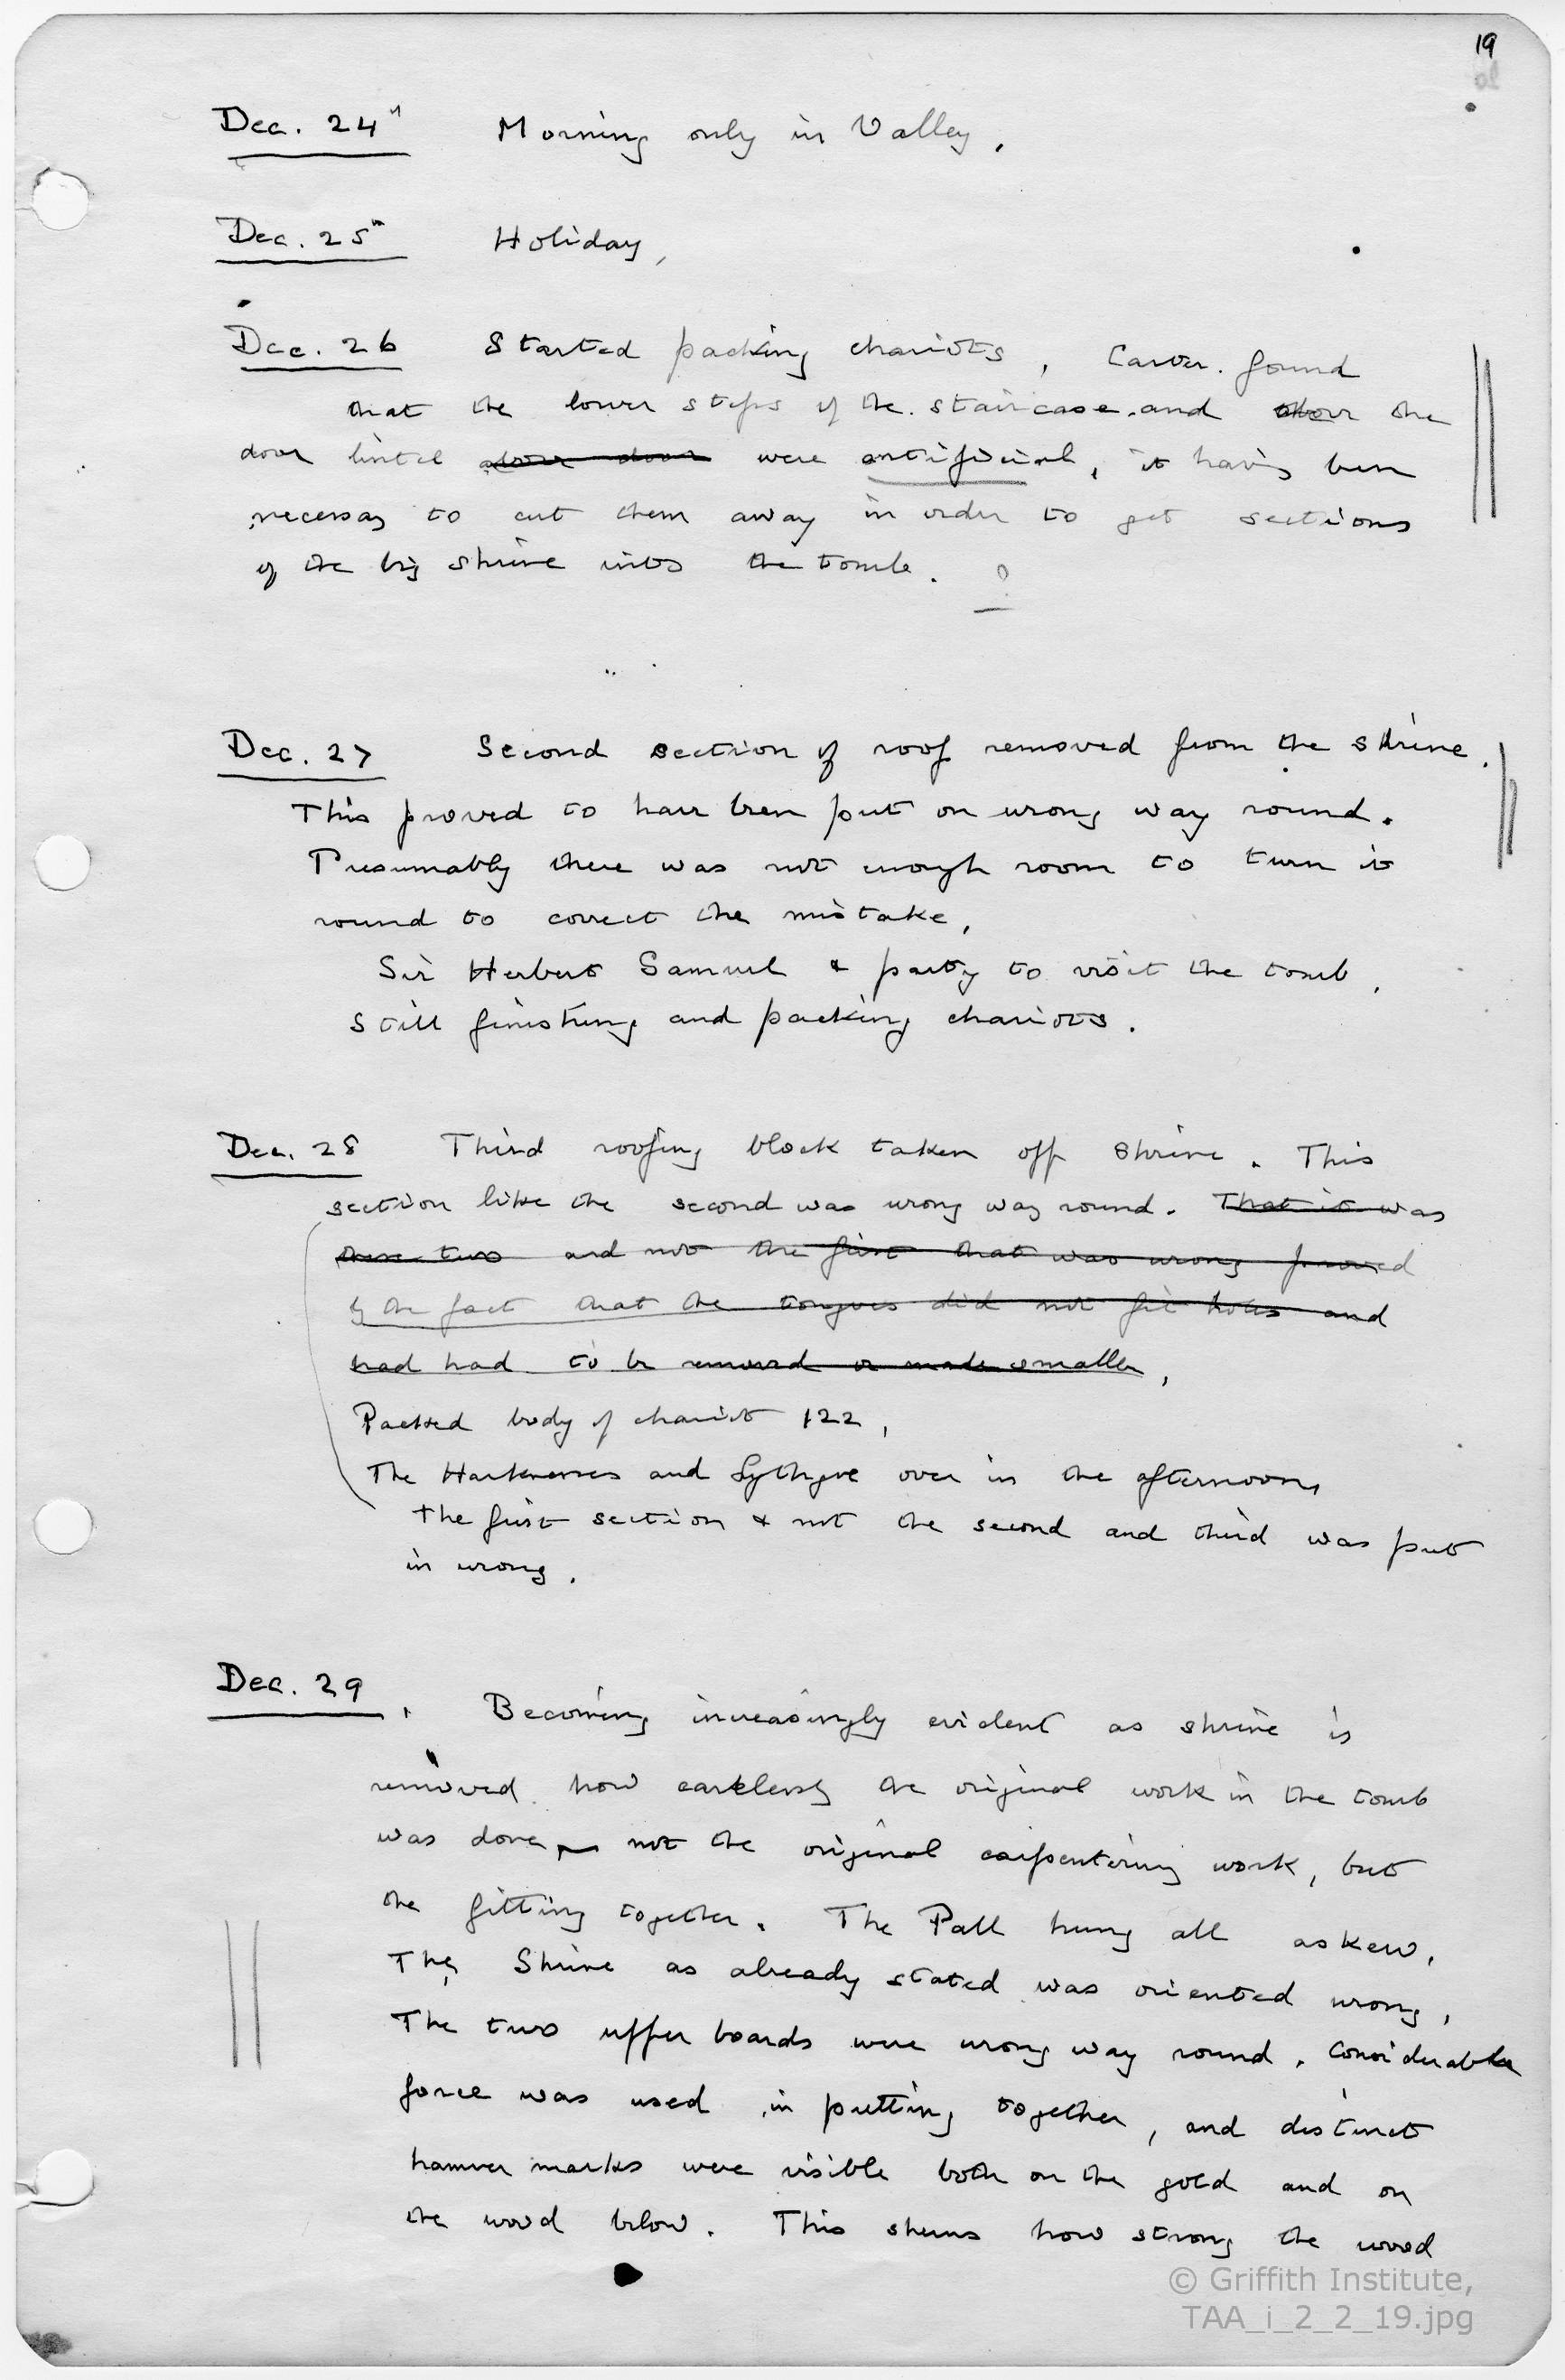 19
Dec. 24th Morning only in Valley.
Dec. 25th Holiday.
Dec. 26 Started packing chariots, Carter found
that the lower steps of the staircase and the
door lintel above door were artificial, it having been
necessary to cut them away in order to get sections
of the big shrine into the tomb. ?
Dec. 27 Second section of roof removed from the shrine.
This proved to have been put on wrong way round.
Presumably there was not enough room to turn it
round to correct the mistake.
Sir Herbert Samuel & party to visit the tomb.
Still finishing and packing chariots.
Dec. 28 Third roofing block taken off shrine. This
section like the second was wrong way round. That it was
these two and not the first that was wrong proved
by the fact that the tongues did not fit holes and
had had to be removed or made smaller.
Packed body of chariot 122.
The Harknesses and Lythgoe over in the afternoon.
The first section & not the second and third was put
in wrong.
Dec. 29. Becoming increasingly evident as shrine is
removed how carelessly the original work in the tomb
was done, not the original carpentering work, but
the fitting together. The Pall hung all askew.
The Shrine as already stated was oriented wrong.
The two upper boards were wrong way round. Considerable
force was used in putting together, and distinct
hammer marks were visible both on the gold and on
the wood below. This shews how strong the wood
© Griffith Institute,
TAA_i_2_2_19.jpg